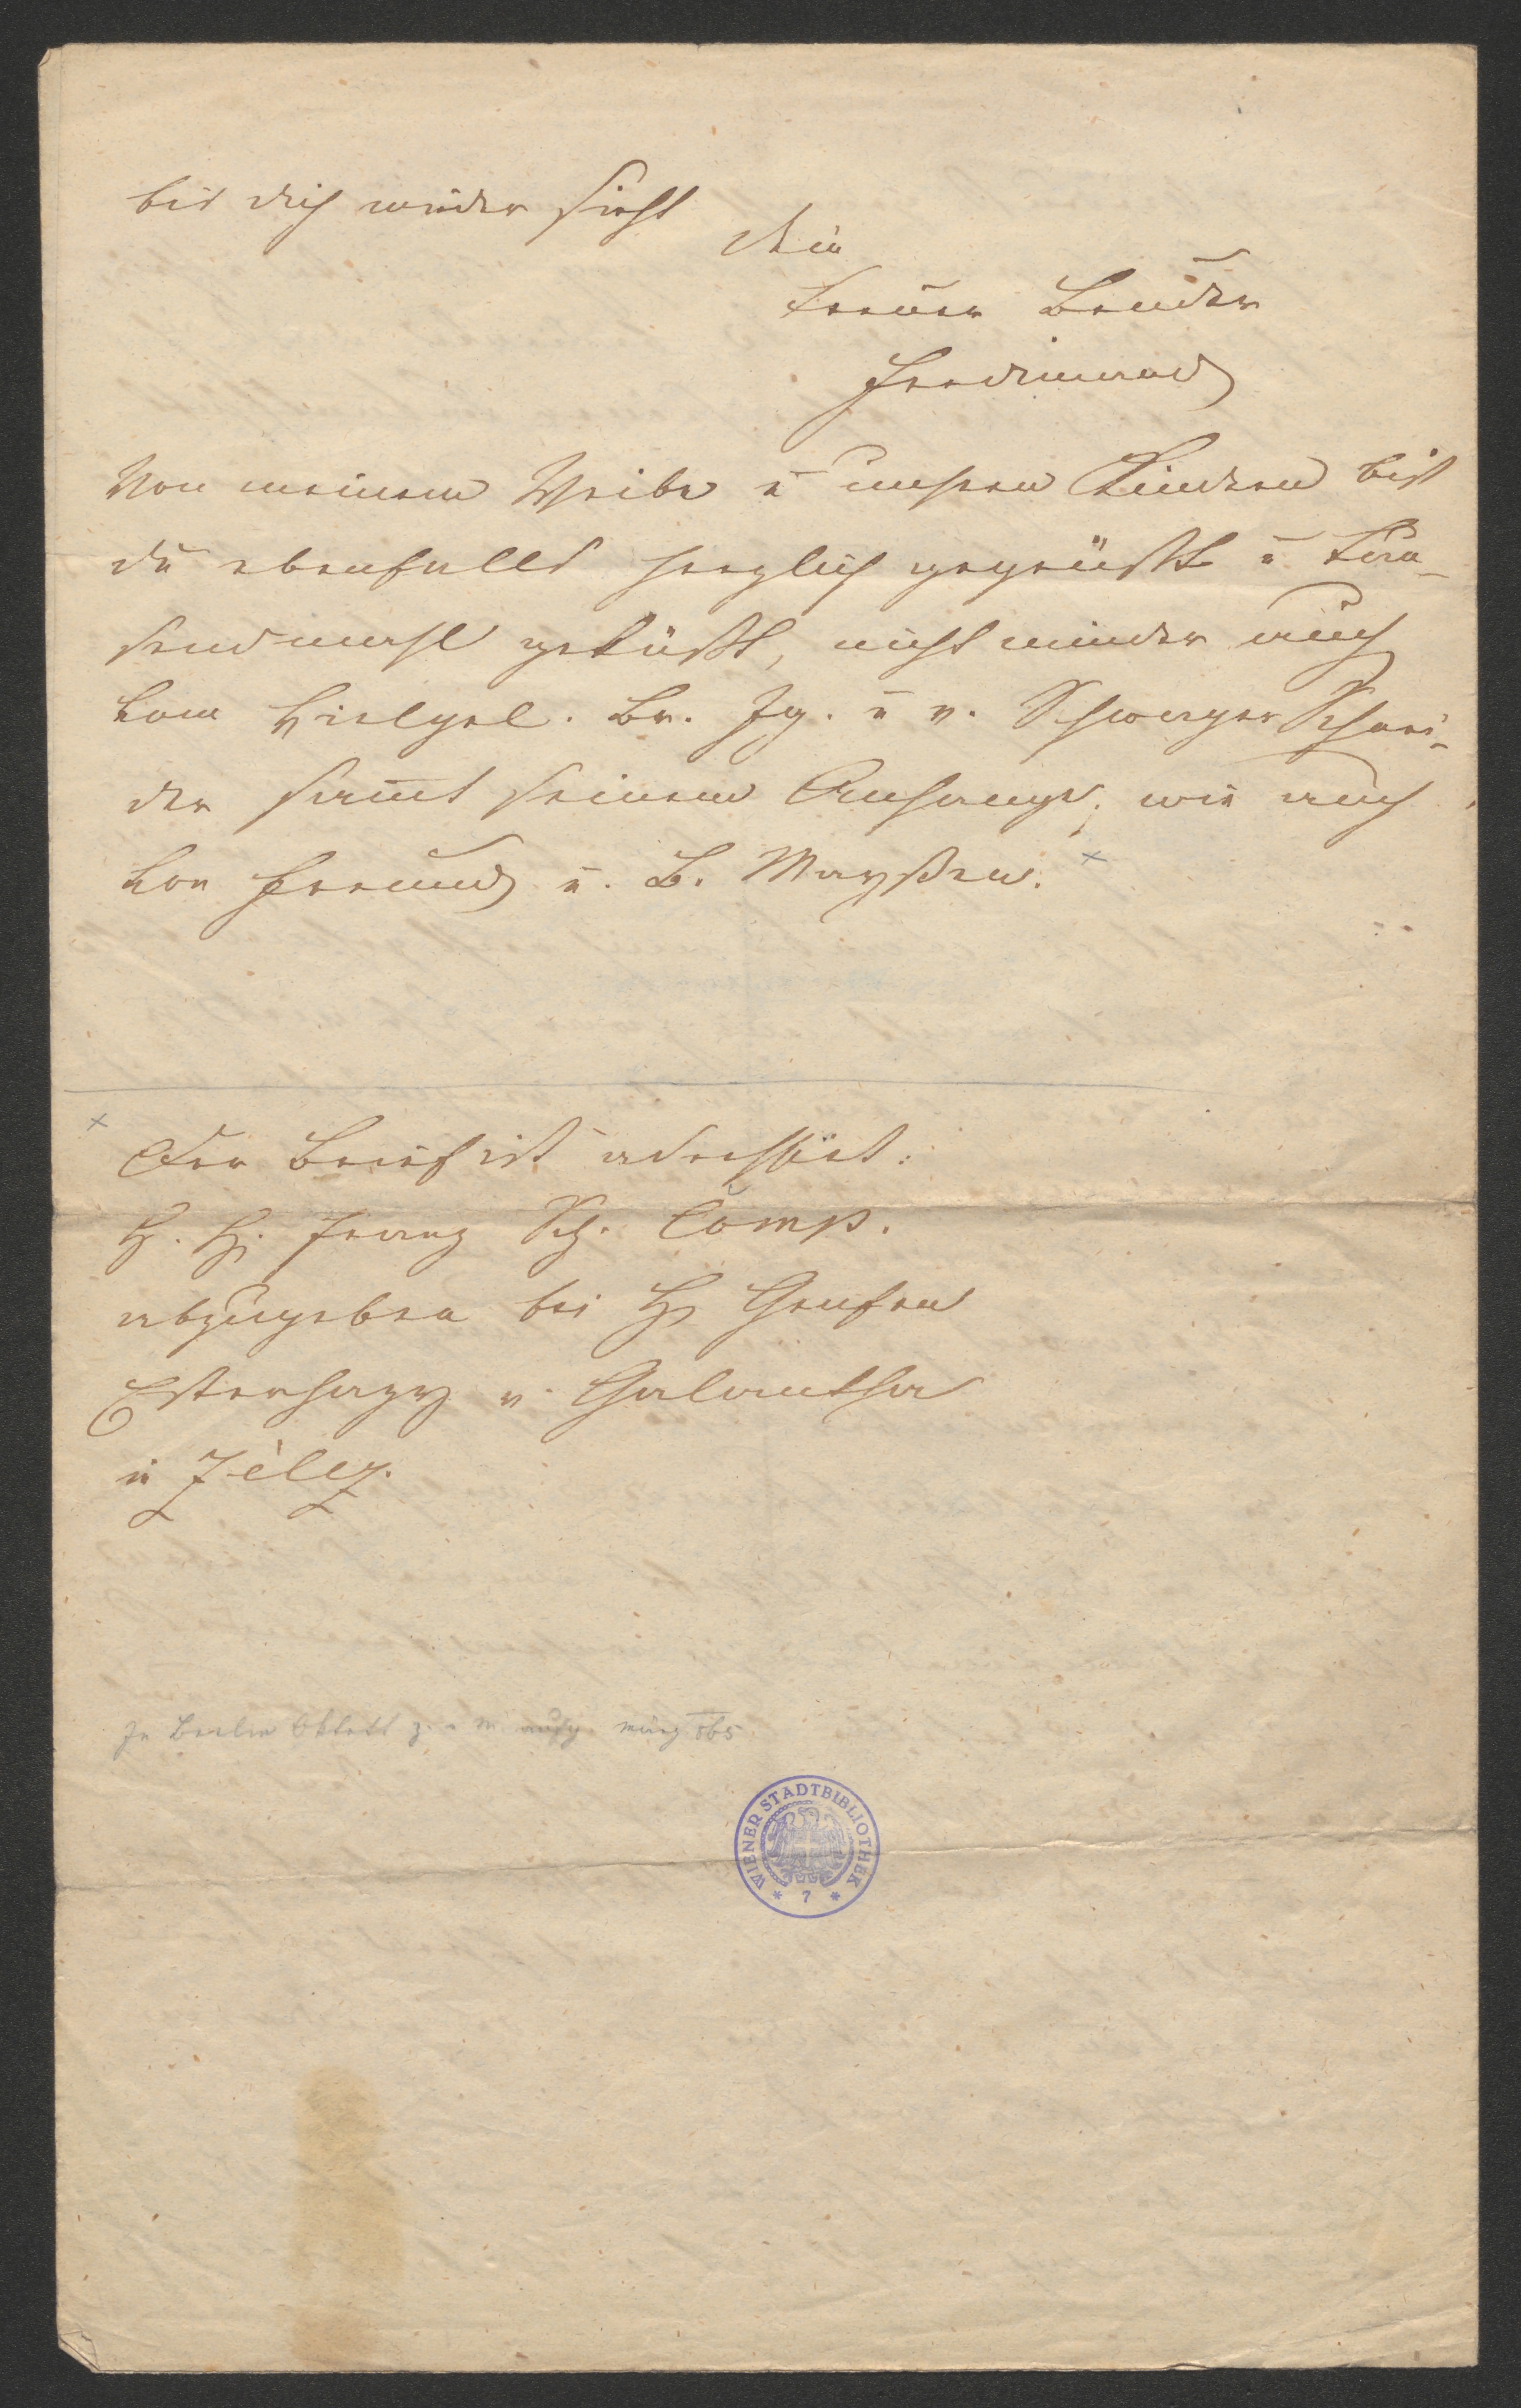 bis dich wieder sieht
Dein
treuer Bruder
Ferdinand
Von meinem Weibe u unsern Kindern bist
du ebenfalls herzlich gegrüßt u tau-
sendmahl geküßt, nicht minder auch
vom Br. Ig. u v. Schwager Schnei-
der sammt seinem Anhange, wie auch
von Freund u. B. Mayßen. x
x Der Brief ist adressiert:
H. H. Franz Sch. Comp.
abzugeben bei H Grafen
Esterhazy v. Galantha
in Zèlez.
In Berlin Oktett z. m aufg. März 865.
WIENER STADTBIBLIOTHEK
* 7 *